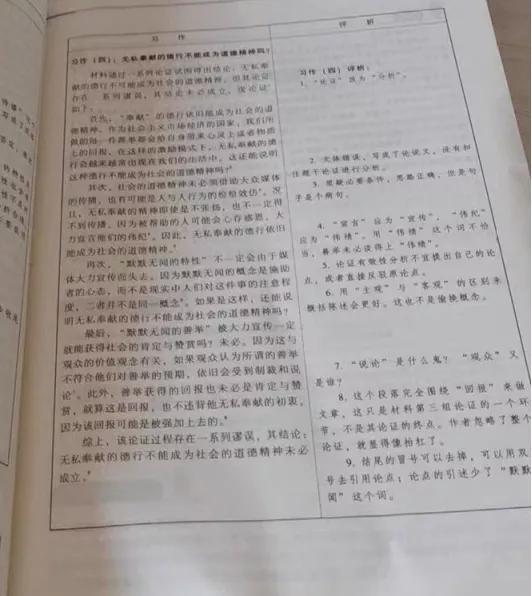 习作
习作（四）：无私奉献的德行不能成为道德精神吗？
材料通过一系列论证试图得出结论：无私奉
献的德行不可能成为社会的道德精神。但其论证
存在一系列谬误，其结论未必成立，
如下：
首先，“奉献”的德行依旧能成为社会的道
德精神。作为社会主义市场经济的国家，我们所
做的每一件善事都会给自身带来心灵上或者物质
上的回报。在这样的激励模式下，无私奉献的德
行会越来越常出现在我们的生活中，这还能说明
这种德行不能成为社会的道德精神吗？
其次，社会的道德精神未必须借助大众媒体
的传播，也有可能是人与人行为的检验效仿。况
且，无私奉献的精神即使是不张扬，也不一定得
不到传播，因为被帮助的人可能会心存感恩，大
力宣言他们的伟纪。因此，无私奉献的德行依旧
能成为社会的道德精神。
再次，“默默无闻的特性”不一定会由于媒
体大力宣传而失去。因为默默无闻的概念是施助
者的心态，而不是现实中人们对这件事的注意程
度，二者并不是同一概念。如果是这样，还能说
明无私奉献的德行不能成为社会的道德精神吗？
最后，“默默无闻的善举”被大力宣传一定
就能获得社会的肯定与赞赏吗？未必。因为这与
观众的价值观念有关，如果观众认为所谓的善举
不符合他们对善举的预期，依旧会受到制裁和说
论。此外，善举获得的回报也未必是肯定与赞
赏，就算这是回报，也不违背他无私奉献的初衷，
因为该回报可能是被强加上去的。
综上，该论证过程存在一系列谬误，其结论：
无私奉献的德行不能成为社会的道德精神未必
成立。
评析
习作（四）评析：
1. “论证”改为“分析”。
2. 大体错误，写成了论说文，没有扣
住题干论证进行分析。
3. 质疑必要条件，思路正确，但是句
子是个病句。
4. “宣言”应为“宣传”，“伟纪”
应为“伟绩”。用“伟绩”这个词不恰
当，善举未必谈得上“伟绩”。
5. 论证有效性分析不宜提出自己的论
点，或者直接反驳原论点。
6. 用“主观”与“客观”的区别来
概括陈述会更好。这也不是偷换概念。
7. “说论”是什么鬼？“观众”又
是谁？
8. 这个段落完全围绕“回报”来做
文章，这只是材料第三组论证的一个环
节，不是其论证的终点。作者忽略了整个
论证，就显得像抬杠了。
9. 结尾的冒号可以去掉，可以用双
号去引用论点；论点的引述少了“默默
闻”这个词。